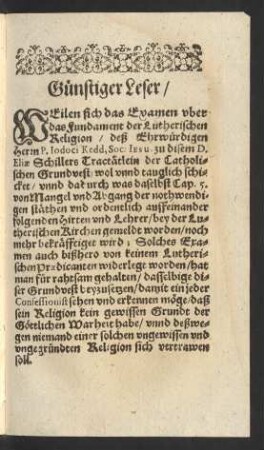 Günstiger Leser /
WEilen sich das Examen vber
das Fundament der Lutherischen
Religion / deß Ehrwürdigen
Herrn P. Iodoci Kedd, Soc: Iesu. zu disem D.
Eliæ Schillers Tractätlein der Catholi-
schen Grundvest / wol vnnd tauglich schi-
cket / vnnd dadurch was daselbst Cap. 5.
von Mangel vnd Abgang der nothwendi-
gen stäthen vnd ordentlich auffeinander
folgenden Hirten vnd Lehrer / bey der Lu-
therischen Kirchen gemeldt worden / noch
mehr bekräfftiget wird; Solches Exa-
men auch bißhero von keinem Lutheri-
schen Prædicanten widerlegt worden / hat
man für rahtsam gehalten / dasselbige di-
ser Grundvest beyzusetzen / damit ein jeder
Confessionist sehen vnd erkennen möge / daß
sein Religion kein gewissen Grundt der
Göttlichen Warheit habe / vnnd deßwe-
gen niemand einer solchen vngewissen vnd
vngegründten Religion sich vertrawen
soll.